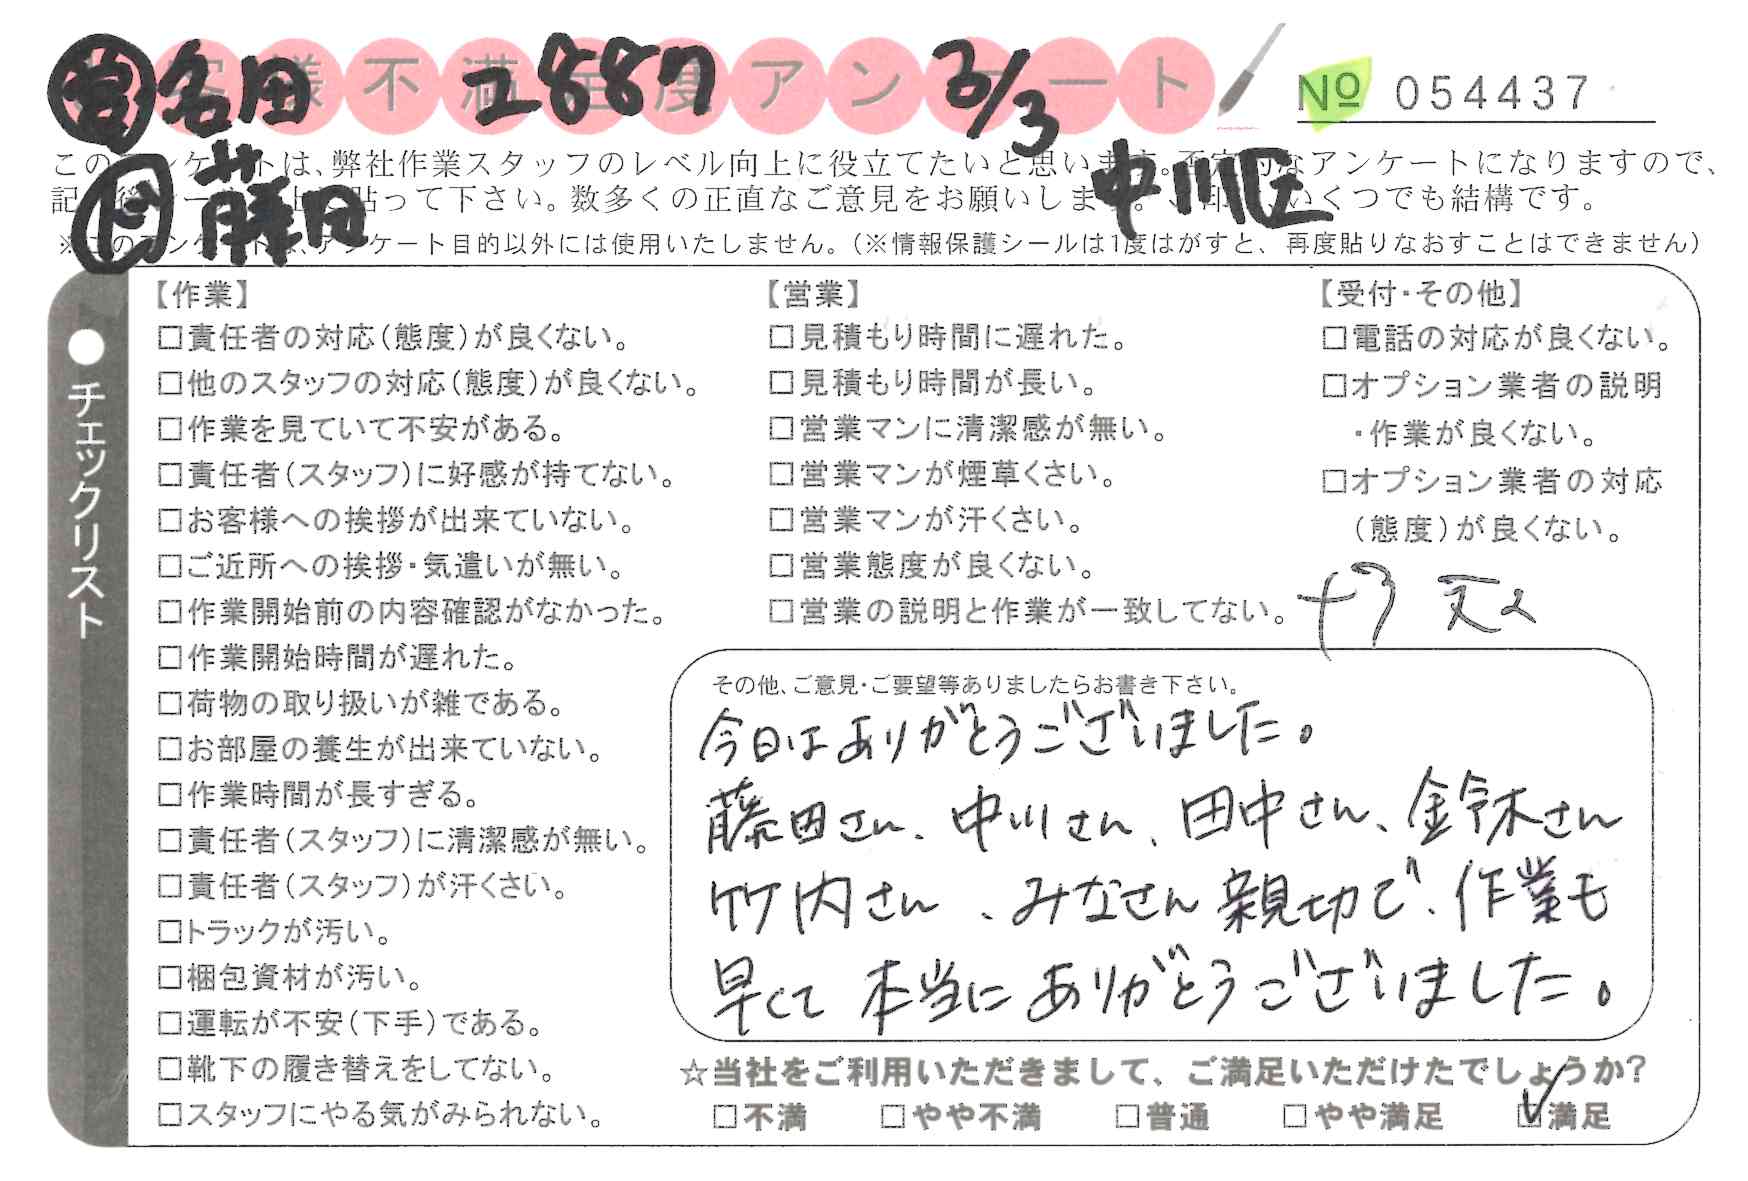 お客様不満足度アンケート
営 名田 エ887 3/3
№ 054437
このアンケートは、弊社作業スタッフのレベル向上に役立てたいと思います。否定的なアンケートになりますので、
中川区
藤田
※このアンケートは、アンケート目的以外には使用いたしません。(※情報保護シールは1度はがすと、再度貼りなおすことはできません)
●チェックリスト
【作業】
□責任者の対応(態度)が良くない。
□他のスタッフの対応(態度)が良くない。
□作業を見ていて不安がある。
□責任者(スタッフ)に好感が持てない。
□お客様への挨拶が出来ていない。
□ご近所への挨拶・気遣いが無い。
□作業開始前の内容確認がなかった。
□作業開始時間が遅れた。
□荷物の取り扱いが雑である。
□お部屋の養生が出来ていない。
□作業時間が長すぎる。
□責任者(スタッフ)に清潔感が無い。
□責任者(スタッフ)が汗くさい。
□トラックが汚い。
□梱包資材が汚い。
□運転が不安(下手)である。
□靴下の履き替えをしてない。
□スタッフにやる気がみられない。
【営業】
□見積もり時間に遅れた。
□見積もり時間が長い。
□営業マンに清潔感が無い。
□営業マンが煙草くさい。
□営業マンが汗くさい。
□営業態度が良くない。
□営業の説明と作業が一致してない。
【受付・その他】
□電話の対応が良くない。
□オプション業者の説明
・作業が良くない。
□オプション業者の対応
(態度)が良くない。
その他、ご意見・ご要望等ありましたらお書き下さい。
今日はありがとうございました。
藤田さん、中川さん、田中さん、金鈴木さん
竹内さん、みなさん親切で、作業も
早くて本当にありがとうございました。
☆当社をご利用いただきまして、ご満足いただけたでしょうか?
□不満 □やや不満 □普通 □やや満足 ☑満足